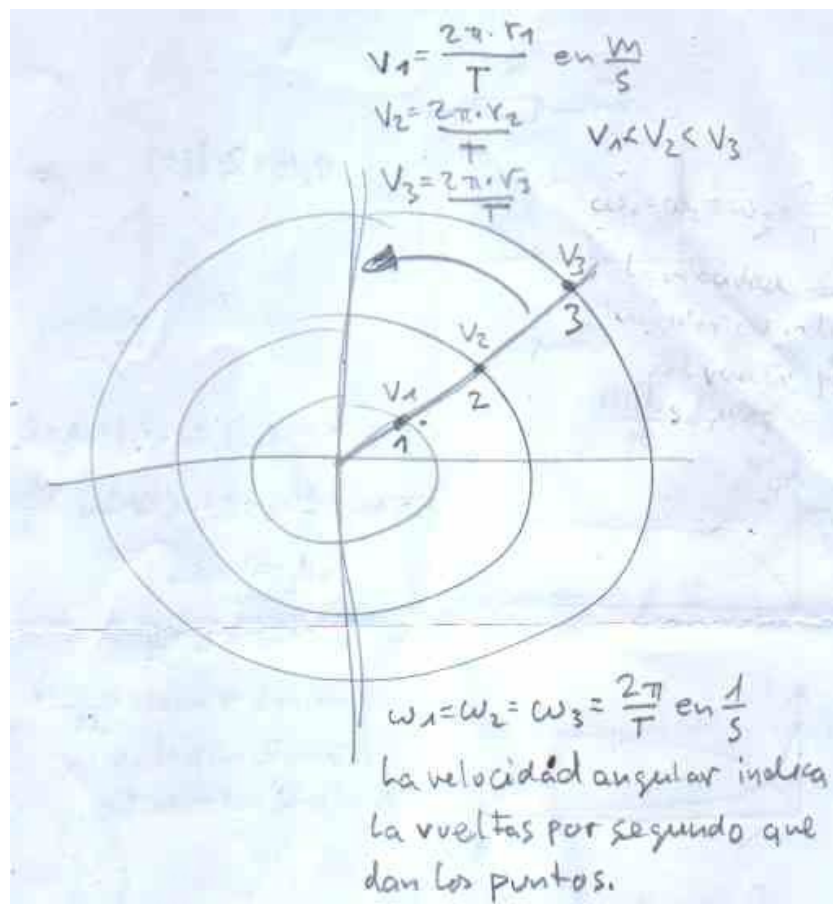 V1 = 2π·r1/T en m/s
V2 = 2π·r2/T
V1 < V2 < V3
V3 = 2π·r3/T
V3
3
V2
2
V1
1
ω1 = ω2 = ω3 = 2π/T en 1/s
La velocidad angular indica
la vueltas por segundo que
dan los puntos.